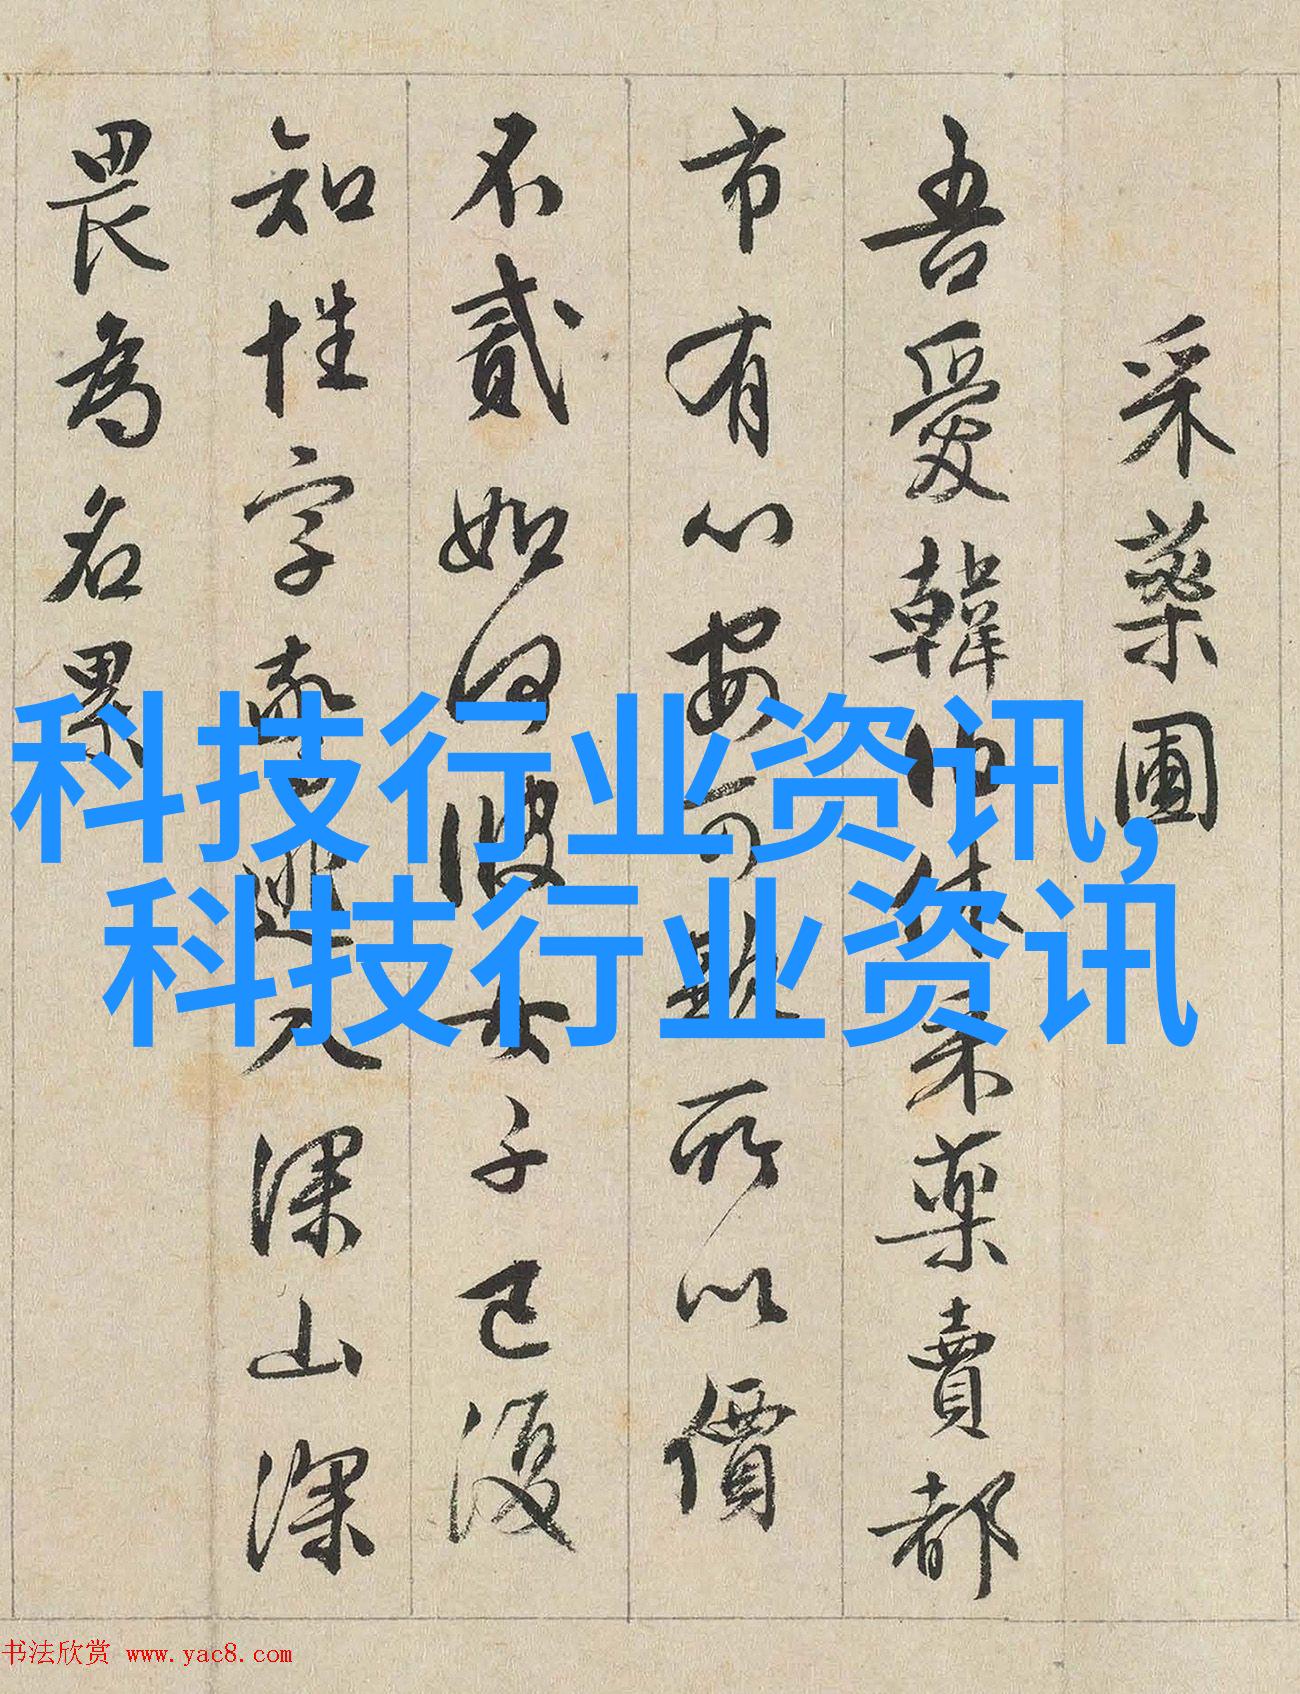 采藥圃
吾愛韓伯休采藥賣都
市有心安可欺所以價
不貳如何彼女子已復
知姓字驚逃入深山深
畏為名累
科技行业资讯,
科技行业资讯
书法欣赏 www.yac8.com